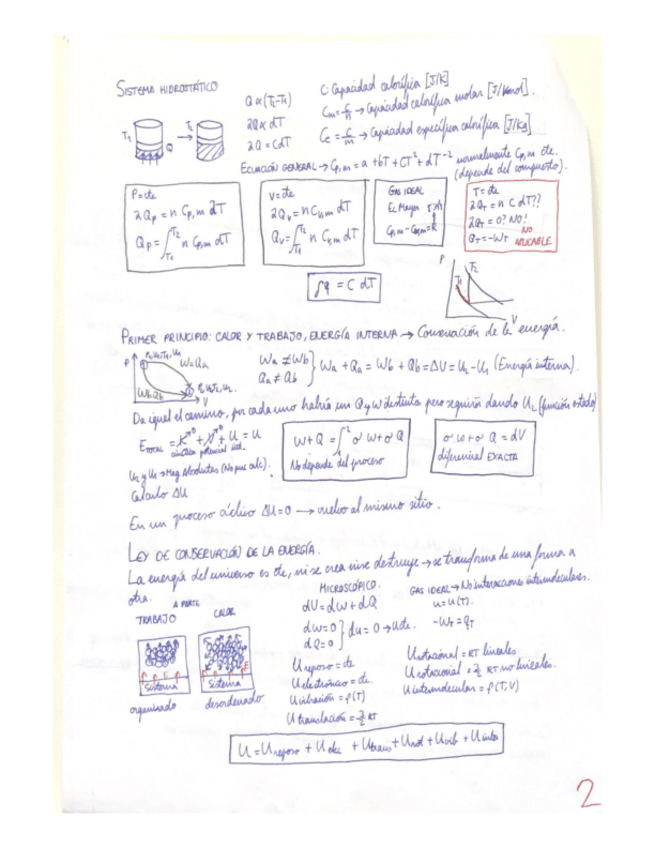 SISTEMA HIDROSTÁTICO
C: Capacidad calorífica [J/K]
Q ∝ (T₂-T₁)
Cm = C/n → Capacidad calorífica molar [J/Kmol].
T₁ T₂ Q
∂Q ∝ dT
∂Q = C dT
Ce = C/m → Capacidad específica calorífica [J/Kg]
ECUACIÓN GENERAL → Cp,m = a + bT + CT² + dT⁻² normalmente Cp,m cte.
(depende del compuesto).
P = cte
∂Qp = n Cp,m dT
Qp = ∫T₁T₂ n Cp,m dT
V = cte
∂Qv = n Cv,m dT
Qv = ∫T₁T₂ n Cv,m dT
GAS IDEAL
Ec Mayer
Cp,m - Cv,m = R
T = cte
∂QT = n C dT??
∂QT = 0? NO!
QT = -WT NO APLICABLE
δq = C dT
P T₁ T₂ V
PRIMER PRINCIPIO: CALOR Y TRABAJO, ENERGÍA INTERNA → Conservación de la energía.
P P₁,V₁,T₁,U₁ Wa Qa
Wb Qb P₂V₂T₂,U₂ V
Wa ≠ Wb
Qa ≠ Qb
} Wa + Qa = Wb + Qb = ΔU = U₂ - U₁ (Energía interna).
Da igual el camino, por cada uno habría un Q y W distinto pero seguirán dando U₂ (función estado)
E TOTAL = K + V + U = U
cinética potencial int.
U₂ y U₁ → Mag Absolutas (No puc calc).
Calculo ΔU
W + Q = ∫₁² σ W + σ Q
No depende del proceso
σ W + σ Q = dU
diferencial EXACTA
En un proceso cíclico ΔU = 0 → vuelvo al mismo sitio.
LEY DE CONSERVACIÓN DE LA ENERGÍA.
La energía del universo es cte, ni se crea ni se destruye → se transforma de una forma a
otra.
A PARTE
TRABAJO CALOR
Sistema Sistema
organizado desordenado
MICROSCÓPICO.
dU = dW + dQ
dW = 0
dQ = 0
} dU = 0 → U cte.
U reposo = cte
U electrónico = cte.
U vibración = f(T)
U translación = 3/2 RT
GAS IDEAL → No interacciones intermoleculares.
U = U(T).
-WT = QT
U rotacional = RT lineales
U rotacional = 3/2 RT no lineales.
U intermolecular = f(T, V)
U = U reposo + U elec + U trans + U rot + U vib + U inter
2